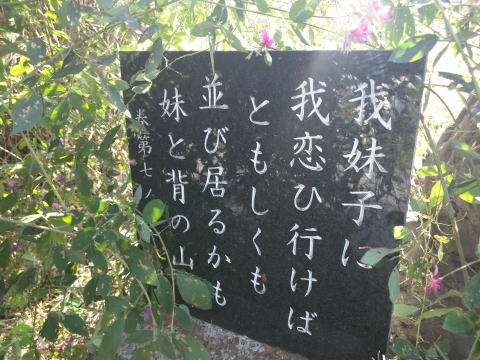 我妹子に
我恋ひ行けば
ともしくも
並び居るかも
妹と背の山
巻第七ノ